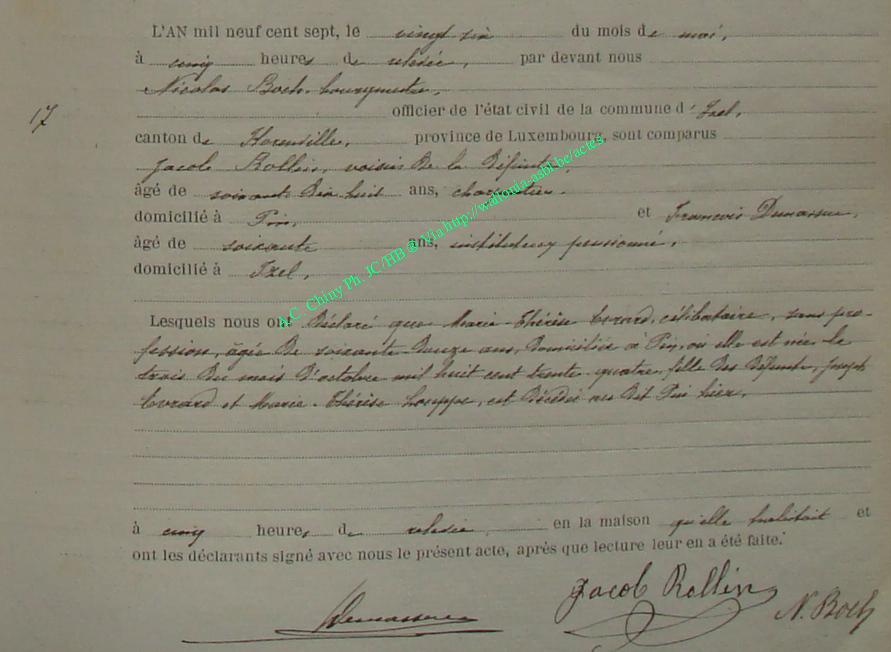 L'AN mil neuf cent sept, le vingt six du mois de mai,
à cinq heures de relevée, par devant nous
Nicolas Boch, bourgmestre,
17
officier de l'état civil de la commune d'Izel,
canton de Florenville, province de Luxembourg, sont comparus
Jacob Rollin, voisin de la défunte,
âgé de soixante dix huit ans, charpentier,
domicilié à Pin, et François Dumasse
âgé de soixante ans, instituteur pensionné,
domicilié à Izel,
A.C. Chiny Ph. JC/HB ® Via http://wallonia-asbl.be/actes,
Lesquels nous ont déclaré que Marie-Thérèse Evrard, célibataire, sans pro-
fession, âgée de soixante-douze ans, domiciliée à Pin, où elle est née le
trois du mois d'octobre mil huit cent trente-quatre, fille des défunts, Joseph
Evrard et Marie-Thérèse Houppe, est décédée au dit Pin hier,
à cinq heures de relevée en la maison qu'elle habitait et
ont les déclarants signé avec nous le présent acte, après que lecture leur en a été faite.
Jacob Rollin
N. Boch